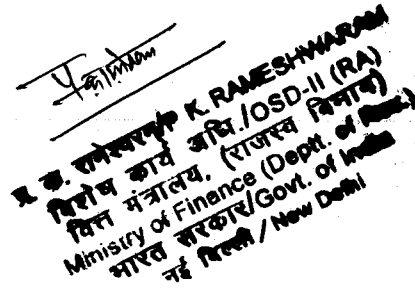 प्र. क. रामेश्वरम/P. K. RAMESHWARAM
विशेष कार्य अधि./OSD-II (RA)
वित्त मंत्रालय, (राजस्व विभाग)
Ministry of Finance (Deptt. of
भारत सरकार/Govt. of India
नई दिल्ली / New Delhi